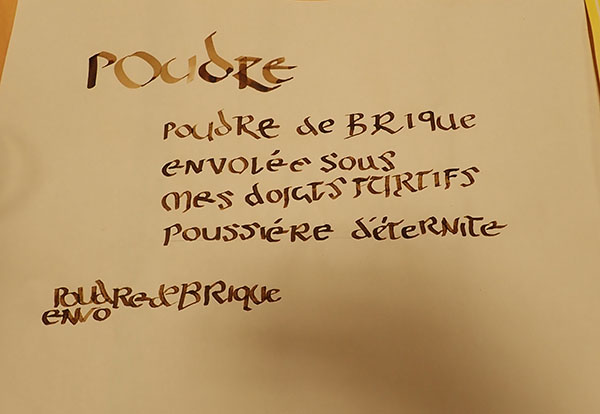 POUDRE
POUDRE de BRIQUE
ENVOLÉE SOUS
MES DOIGTS FURTIFS
POUSSIÉRE d'ÉTERNITE
POUDRE de BRIQUE
ENVO